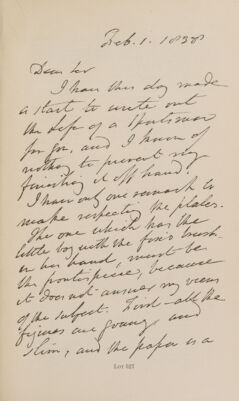 Feb. 1. 1838
Dear Sir
I have this day made
a start to write out
the Life of a Sportsman
for you, and I know of
nothing to prevent my
finishing it off hand.
I have only one remark to
make respecting the plates.
The one which has the
little boy with the fox's brush
in his hand, must be
the frontispiece, because
it does not answer my views
of the subject. First all the
figures are young and
slim, and the paper is a
Lot 621